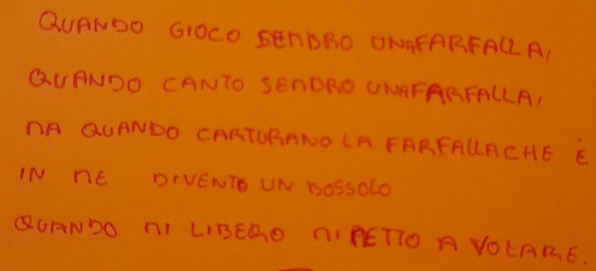 QUANDO GIOCO SEMBRO UNA FARFALLA,
QUANDO CANTO SEMBRO UNA FARFALLA,
MA QUANDO CATTURANO LA FARFALLA CHE È
IN ME DIVENTO UN BOSSOLO
QUANDO MI LIBERO MI METTO A VOLARE.